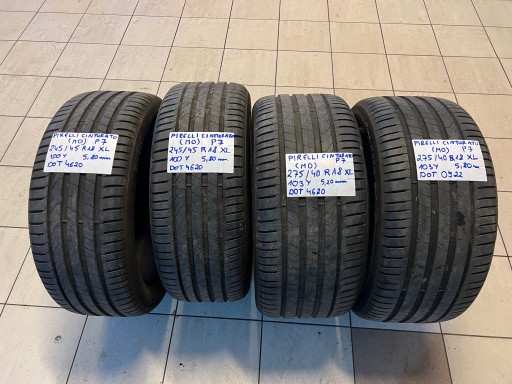 PIRELLI CINTURATO
(MO) P7
245/45 R 18 XL
100Y 5,80 mm
DOT 4620
PIRELLI CINTURATO
(MO) P7
245/45 R 18 XL
100Y 5,80 mm
DOT 4620
PIRELLI CINTURATO
(MO) P7
275/40 R 18 XL
103Y 5,20 mm
DOT 4620
PIRELLI CINTURATO
(MO) P7
275/40 R 18 XL
103Y 5,80 mm
DOT 0322